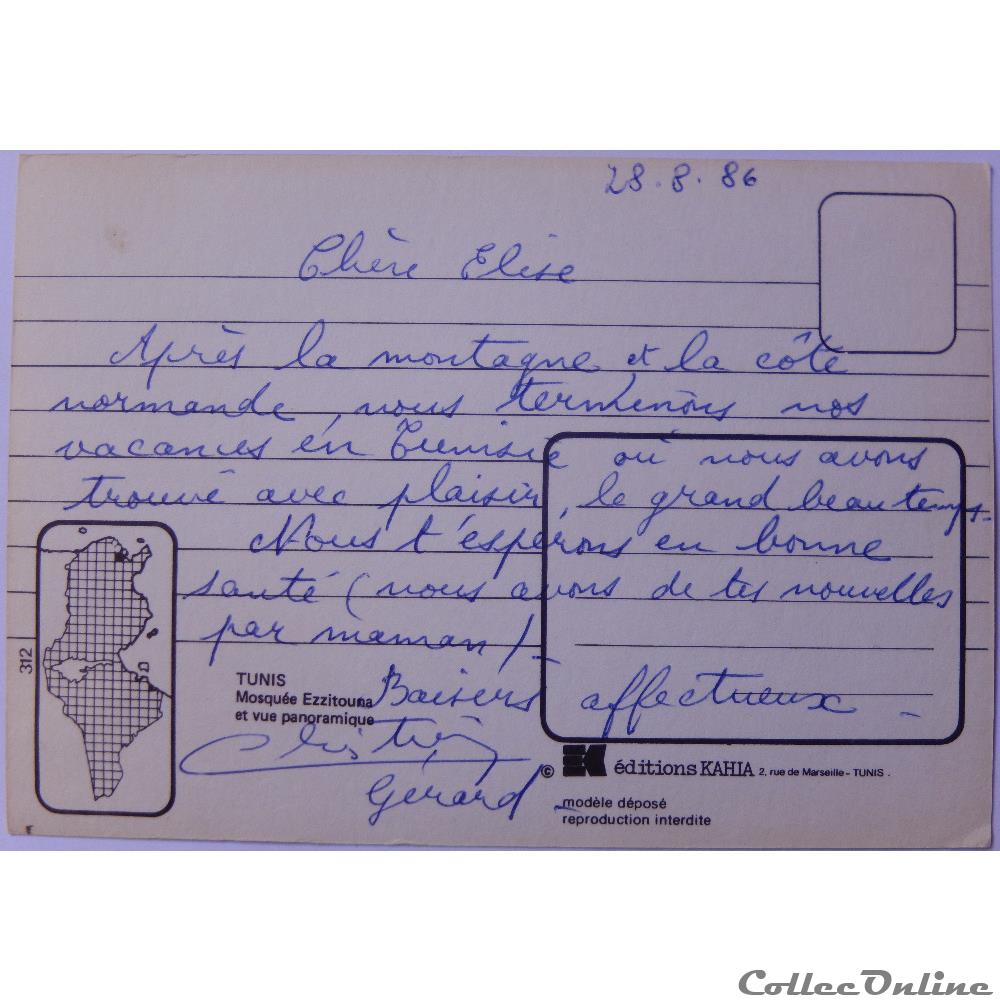 28.8.86
Chère Elise
Après la montagne et la côte
normande, nous terminons nos
vacances en Tunisie où nous avons
trouvé avec plaisir, le grand beau temps.
Nous t'espérons en bonne
santé (nous avons de tes nouvelles
par maman)_
Baisers affectueux _
Gérard _
312
TUNIS
Mosquée Ezzitouna
et vue panoramique
© éditions KAHIA 2, rue de Marseille - TUNIS.
modèle déposé
reproduction interdite
CollecOnline